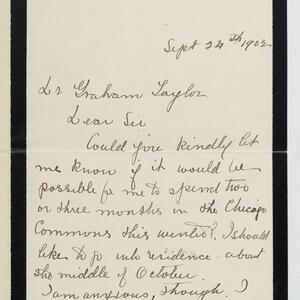 Sept 24th 1902
Dr Graham Taylor
Dear Sir
Could you kindly let
me know if it would be
possible for me to spend two
or three months in the Chicago
Commons this winter? I should
like to go into residence about
the middle of October.
I am anxious, though. I